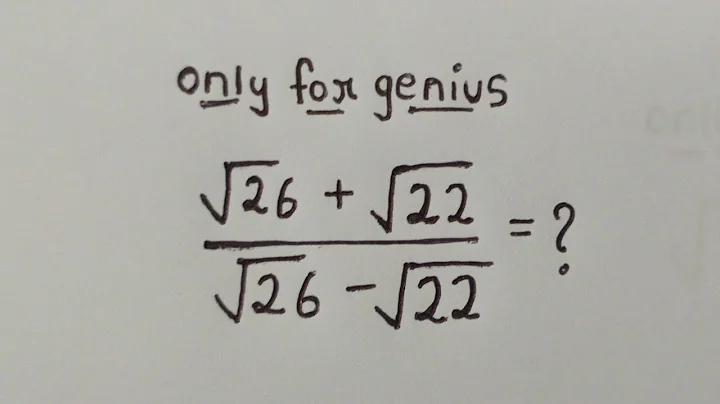 only for genius
√26 + √22
= ?
√26 - √22